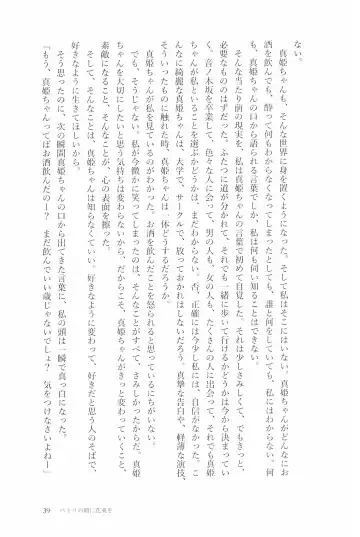 ない。
　真姫ちゃんも、そんな世界に身を置くようになった。そして私はそこにはいない。真姫ちゃんがどんなにお
酒を飲んでも、酔って何もわからなくなってしまったとしても、誰と何をしていても、私にはわからない。何
もかも、真姫ちゃんの口から語られる言葉でしか、私は何も伺い知ることはできない。
　そんな当たり前の現実を、私は真姫ちゃんの言葉で初めて自覚した。それは少しさみしくて、でもきっと、
必要なもののはずだった。ふたつに道が分かれて、それでも一緒に歩いて行けるかどうかは今から決まってい
く。音ノ木坂を卒業して、色々な人に会って、男の人も、女の人も、たくさんの人に出会って、それでも真姫
ちゃんが私といることを選ぶかどうかは、まだわからない。否、正確には今少し私には、自信がなかった。こ
んなに綺麗な真姫ちゃんは、大学で、サークルで、放っておかれはしないだろう。真摯な告白や、軽薄な演技、
そういったものに触れた時、真姫ちゃんは一体どうするだろうか。
　でも、そうじゃない。私が今微かに笑ってしまったのは、そんなことがすべて、さみしかったからだ。真姫
ちゃんが私を見ているのがわかった。お酒を飲んだことを怒られると思っているにちがいない。
ちゃんを大切にしたいと思う気持ちは変わらないから、だからこそ、真姫ちゃんがきっと変わっていくこと、
素敵になること、そんなことが、心の表面を擦った。
　そして、そんなことは、真姫ちゃんは知らなくていい。好きなように変わって、好きだと思う人のそばで、
好きなように生きてほしいから。
　そう思ったのに、次の瞬間真姫ちゃんの口から出てきた言葉に、私の頭は一瞬で真っ白になった。
「もう、真姫ちゃんってばお酒飲んだのー？　まだ飲んでいい歳じゃないでしょ？　気をつけなさいよねー」
39